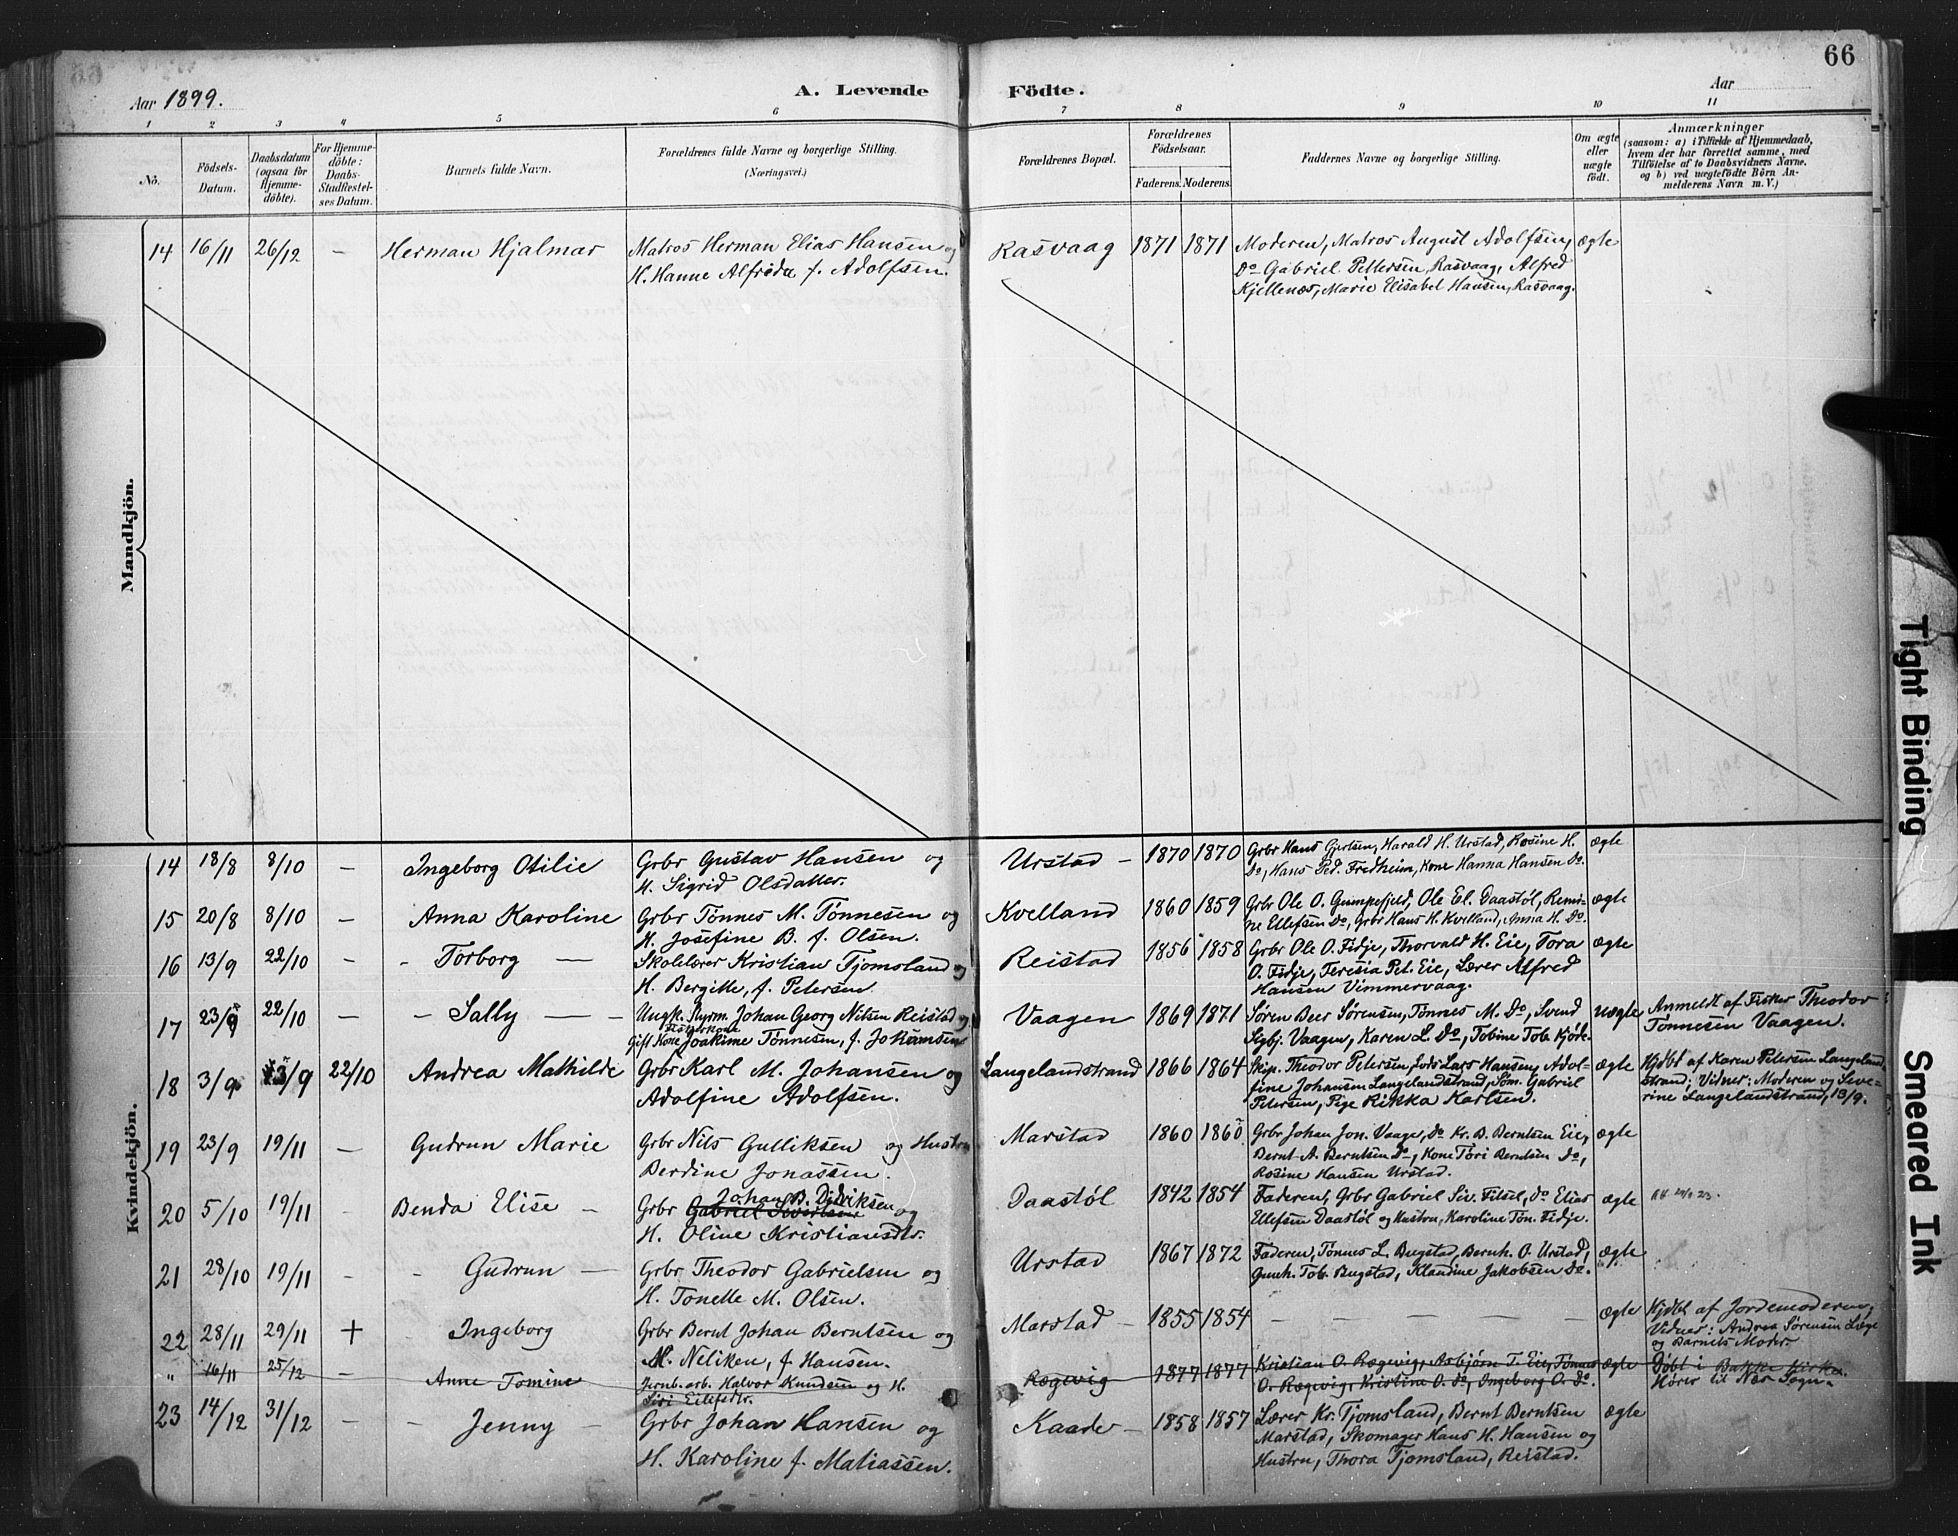 66
Aar 1899. A. Levende Födte. Aar
1 2 3 4 5 6 7 8 9 10 11
No.
Födsels-
Datum.
Daabsdatum
(ogsaa for
Hjemme-
döbte).
For Hjemme-
döbte:
Daabs-
Stadfestel-
ses Datum.
Barnets fulde Navn.
Forældrenes fulde Navne og borgerlige Stilling.
(Næringsvei.)
Forældrenes Bopæl.
Forældrenes
Födselsaar.
Faderens. Moderens.
Faddernes Navne og borgerlige Stilling.
Om ægte
eller
uægte
födt.
Anmærkninger
(saasom: a) i Tilfælde af Hjemmedaab,
hvem der har forrettet samme, med
Tilföielse af to Daabsvidners Navne.
og b) ved uægtefödte Börn An-
melderens Navn m. V.)
Mandkjön.
14 16/11 26/12 — Herman Hjalmar Matros Herman Elias Hansen og Rasvaag 1871 1871 Moderen, Matros August Adolfsen, ægte
H. Hanne Alfrida f. Adolfsen. Do Gabriel Pettersen, Rasvaag, Alfred
Kjellenes, Marie Elisabet Hansen, Rasvaag.
Kvindekjön.
14 18/8 8/10 — Ingeborg Otilie Grbr Gustav Hansen og Urstad — 1870 1870 Grbr Hans Gjertsen, Harald H. Urstad, Rosine H. ægte
H. Sigrid Olsdatter. Do, Hans Ped. Fredheim, Kone Hanna Hansen Do.
15 20/8 8/10 — Anna Karoline Grbr Tönnes M. Tönnesen og Kvelland 1860 1859 Grbr Ole O. Gumpefjeld, Ole El. Daastöl, Remi- ægte
H. Josefine B. f. Olsen. ne Ellefsen Do, Grbr Hans H. Kvelland, Anna H. Do.
16 13/9 22/10 — Torborg — Skolelærer Kristian Tjomsland og Reistad 1856 1858 Grbr Ole O. Fidje, Thorvald H. Eie, Tora ægte
H. Bergitte, f. Petersen O. Fidje, Teresia Pet. Eie, Lærer Alfred
Hansen Vimmervaag.
17 23/9 22/10 — Sally — Ungk. Styrm. Johan Georg Nilsen Reistad og Vaagen 1869 1871 Sören Beer Sörensen, Tönnes M. Do, Svend uægte Anmeldt af Fisker Theodor
Fiskerkone
gift Kone Joakime Tönnesen, f. Johansen Sigbj. Vaagen, Karen L. Do, Tobine Tob. Kjörle Tönnesen Vaagen.
18 3/9 13/9 22/10 Andrea Mathilde Grbr Karl M. Johansen og Langelandstrand 1866 1864 Skip. Theodor Petersen, Lods Lars Hansen, Adol- ægte Hjdbt af Karen Petersen Langeland-
Adolfine Adolfsen. fine Johansen Langelandstrand, Söm. Gabriel strand; Vidner: Moderen og Seve-
Petersen, Pige Rikka Karlsen. rine Langelandstrand, 13/9.
19 23/9 19/11 — Gudrun Marie Grbr Nils Gulliksen og Hustru Marstad 1860 1860 Grbr Johan Jon. Vaage, do Kr. B. Berntsen Eie, ægte
Berdine Jonassen. Bernt A. Berntsen Do, Kone Tori Berntsen Do,
Rosine Hansen Urstad.
Johan B. Didriksen
20 5/10 19/11 — Benda Elise — Grbr Gabriel Sivertsen og Daastöl 1842 1854 Faderen, Grbr Gabriel Siv. Fitsel, do Elias ægte
H. Oline Kristiansdtr. Ellefsen Daastöl og Hustru, Karoline Tön. Fidje.
21 28/10 19/11 — Gudrun — Grbr Theodor Gabrielsen og Urstad 1867 1872 Faderen, Tönnes L. Bugstad, Bernh. O. Urstad, ægte
H. Tonette M. Olsen. Gunh. Tob. Bugstad, Klaudine Jakobsen Do.
22 28/11 29/11 + Ingeborg Grbr Bernt Johan Berntsen og Marstad — 1855 1854 — — — — ægte Hjdbt af Jordemoderen,
H. Neliken, f. Hansen. Vidner: Andrea Sörensen Læge
og Barnets Moder.
" 16/11 25/12 — Anne Tomine Jernb.arb. Halvor Knudsen og H. Rægevig 1877 1877 Kristian O. Rægevig, Asbjörn T. Eie, Tönnes ægte Döbt i Bakke Kirke.
Siri Eilefsdtr. O. Rægevig, Kristine O. do, Ingeborg O. do. Hörer til Næs Sogn.
23 14/12 31/12 — Jenny — Grbr Johan Hansen og Kaade — 1858 1857 Lærer Kr. Tjomsland, Bernt Berntsen ægte
H. Karoline f. Matiassen. Marstad, Skomager Hans H. Hansen og
Hustru, Thora Tjomsland, Reistad.
Tight Binding
Smeared Ink